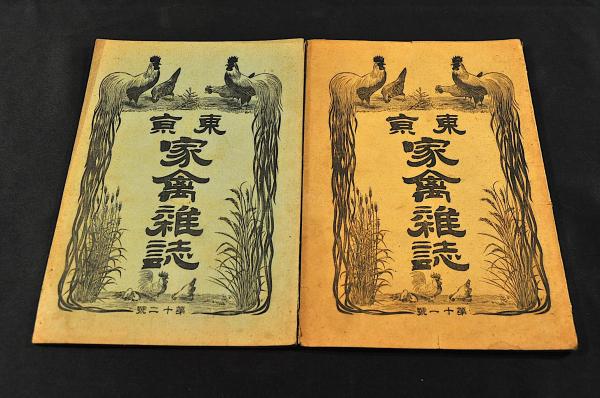 東京
家禽雜誌
第十二號
東京
家禽雜誌
第十一號